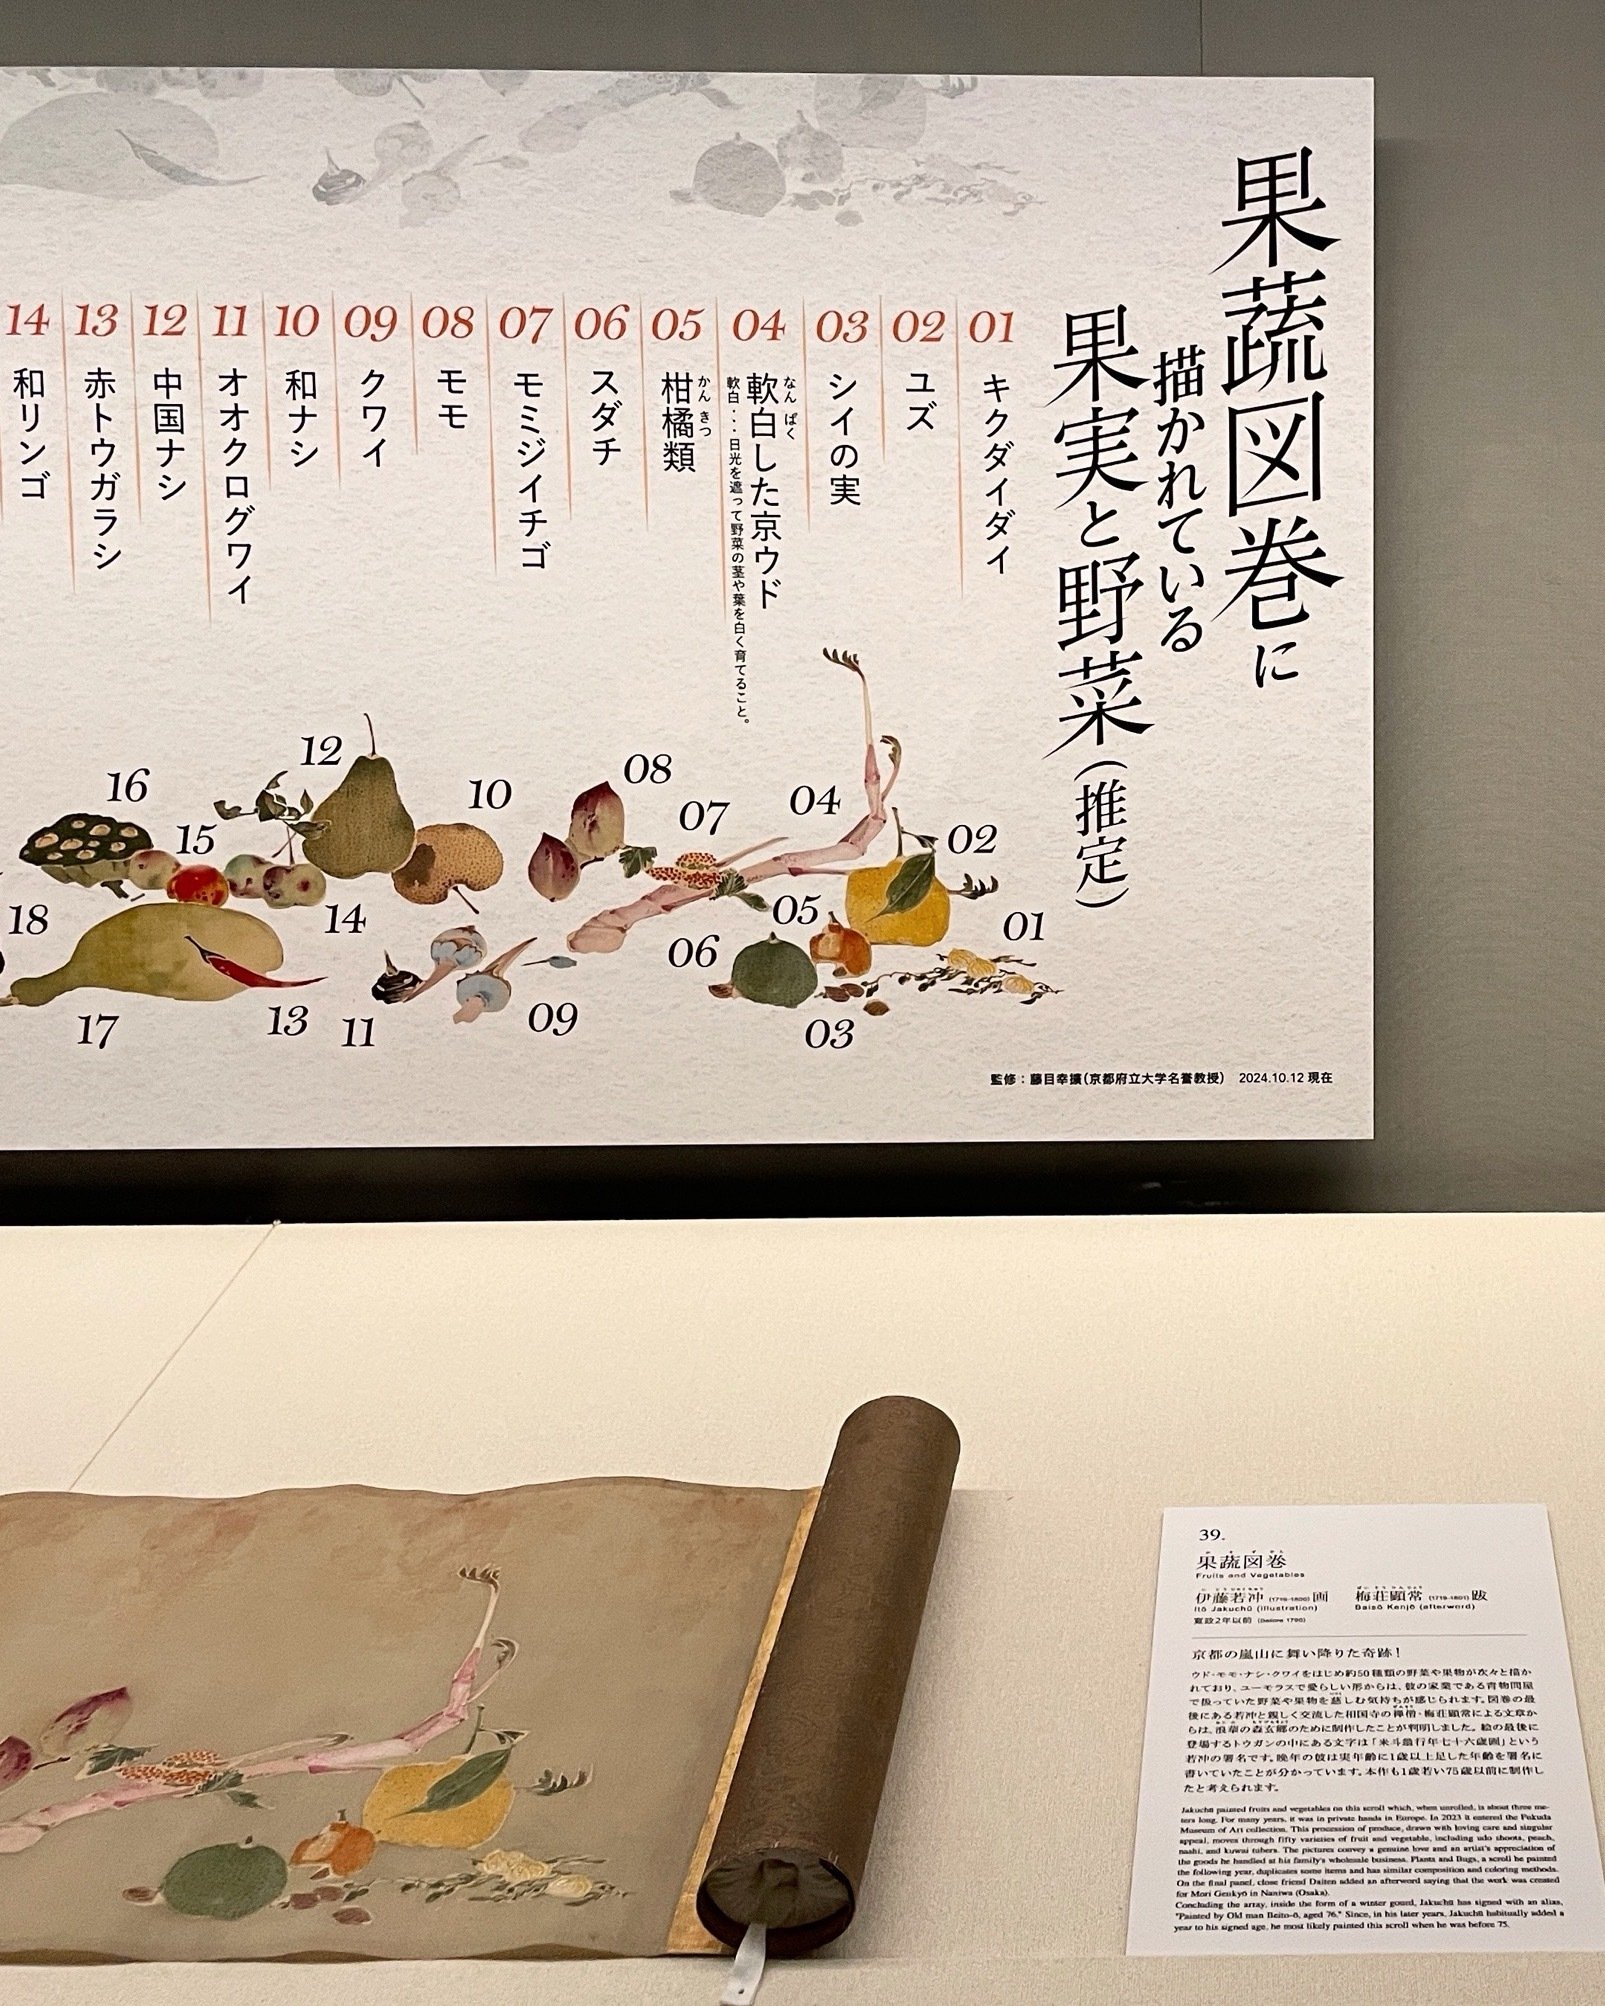 果蔬図巻に
描かれている
果実と野菜(推定)
01 キクダイダイ
02 ユズ
03 シイの実
04 軟白した京ウド
なんぱく
軟白・・・日光を遮って野菜の茎や葉を白く育てること。
05 柑橘類
かんきつ
06 スダチ
07 モミジイチゴ
08 モモ
09 クワイ
10 和ナシ
11 オオクログワイ
12 中国ナシ
13 赤トウガラシ
14 和リンゴ
12
16
15
10
08
07
04
02
18
14
05
01
06
17
13
11
09
03
監修:藤目幸擴(京都府立大学名誉教授) 2024.10.12 現在
39.
果蔬図巻
Fruits and Vegetables
伊藤若冲 (1716-1800) 画 梅荘顕常 (1719-1801) 跋
Itō Jakuchū (illustration) Baisō Kenjō (afterword)
寛政2年以前 (Before 1790)
京都の嵐山に舞い降りた奇跡!
ウド・モモ・ナシ・クワイをはじめ約50種類の野菜や果物が次々と描か
れており、ユーモラスで愛らしい形からは、彼の家業である青物問屋
で扱っていた野菜や果物を慈しむ気持ちが感じられます。図巻の最
後にある若冲と親しく交流した相国寺の禅僧・梅荘顕常による文章か
らは、浪華の森玄郷のために制作したことが判明しました。絵の最後に
登場するトウガンの中にある文字は「米斗翁行年七十六歳画」という
若冲の署名です。晩年の彼は実年齢に1歳以上足した年齢を署名に
書いていたことが分かっています。本作も1歳若い75歳以前に制作し
たと考えられます。
Jakuchū painted fruits and vegetables on this scroll which, when unrolled, is about three me-
ters long. For many years, it was in private hands in Europe. In 2023 it entered the Fukuda
Museum of Art collection. This procession of produce, drawn with loving care and singular
appeal, moves through fifty varieties of fruit and vegetable, including udo shoots, peach,
nashi, and kuwai tubers. The pictures convey a genuine love and an artist's appreciation of
the goods he handled at his family's wholesale business. Plants and Bugs, a scroll he painted
the following year, duplicates some items and has similar composition and coloring methods.
On the final panel, close friend Daiten added an afterword saying that the work was created
for Mori Genkyō in Naniwa (Osaka).
Concluding the array, inside the form of a winter gourd, Jakuchū has signed with an alias,
"Painted by Old man Beito-ō, aged 76." Since, in his later years, Jakuchū habitually added a
year to his signed age, he most likely painted this scroll when he was before 75.